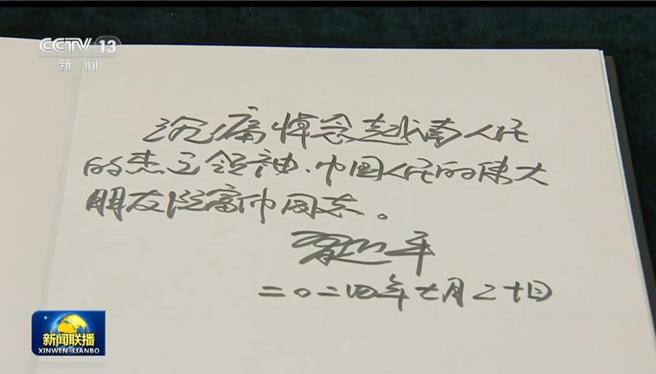 CCTV 13
新闻
沉痛悼念越南人民
的杰出领袖、中国人民的伟大
朋友阮富仲同志。
习近平
二〇二四年七月二十日
新闻联播
XINWEN LIANBO